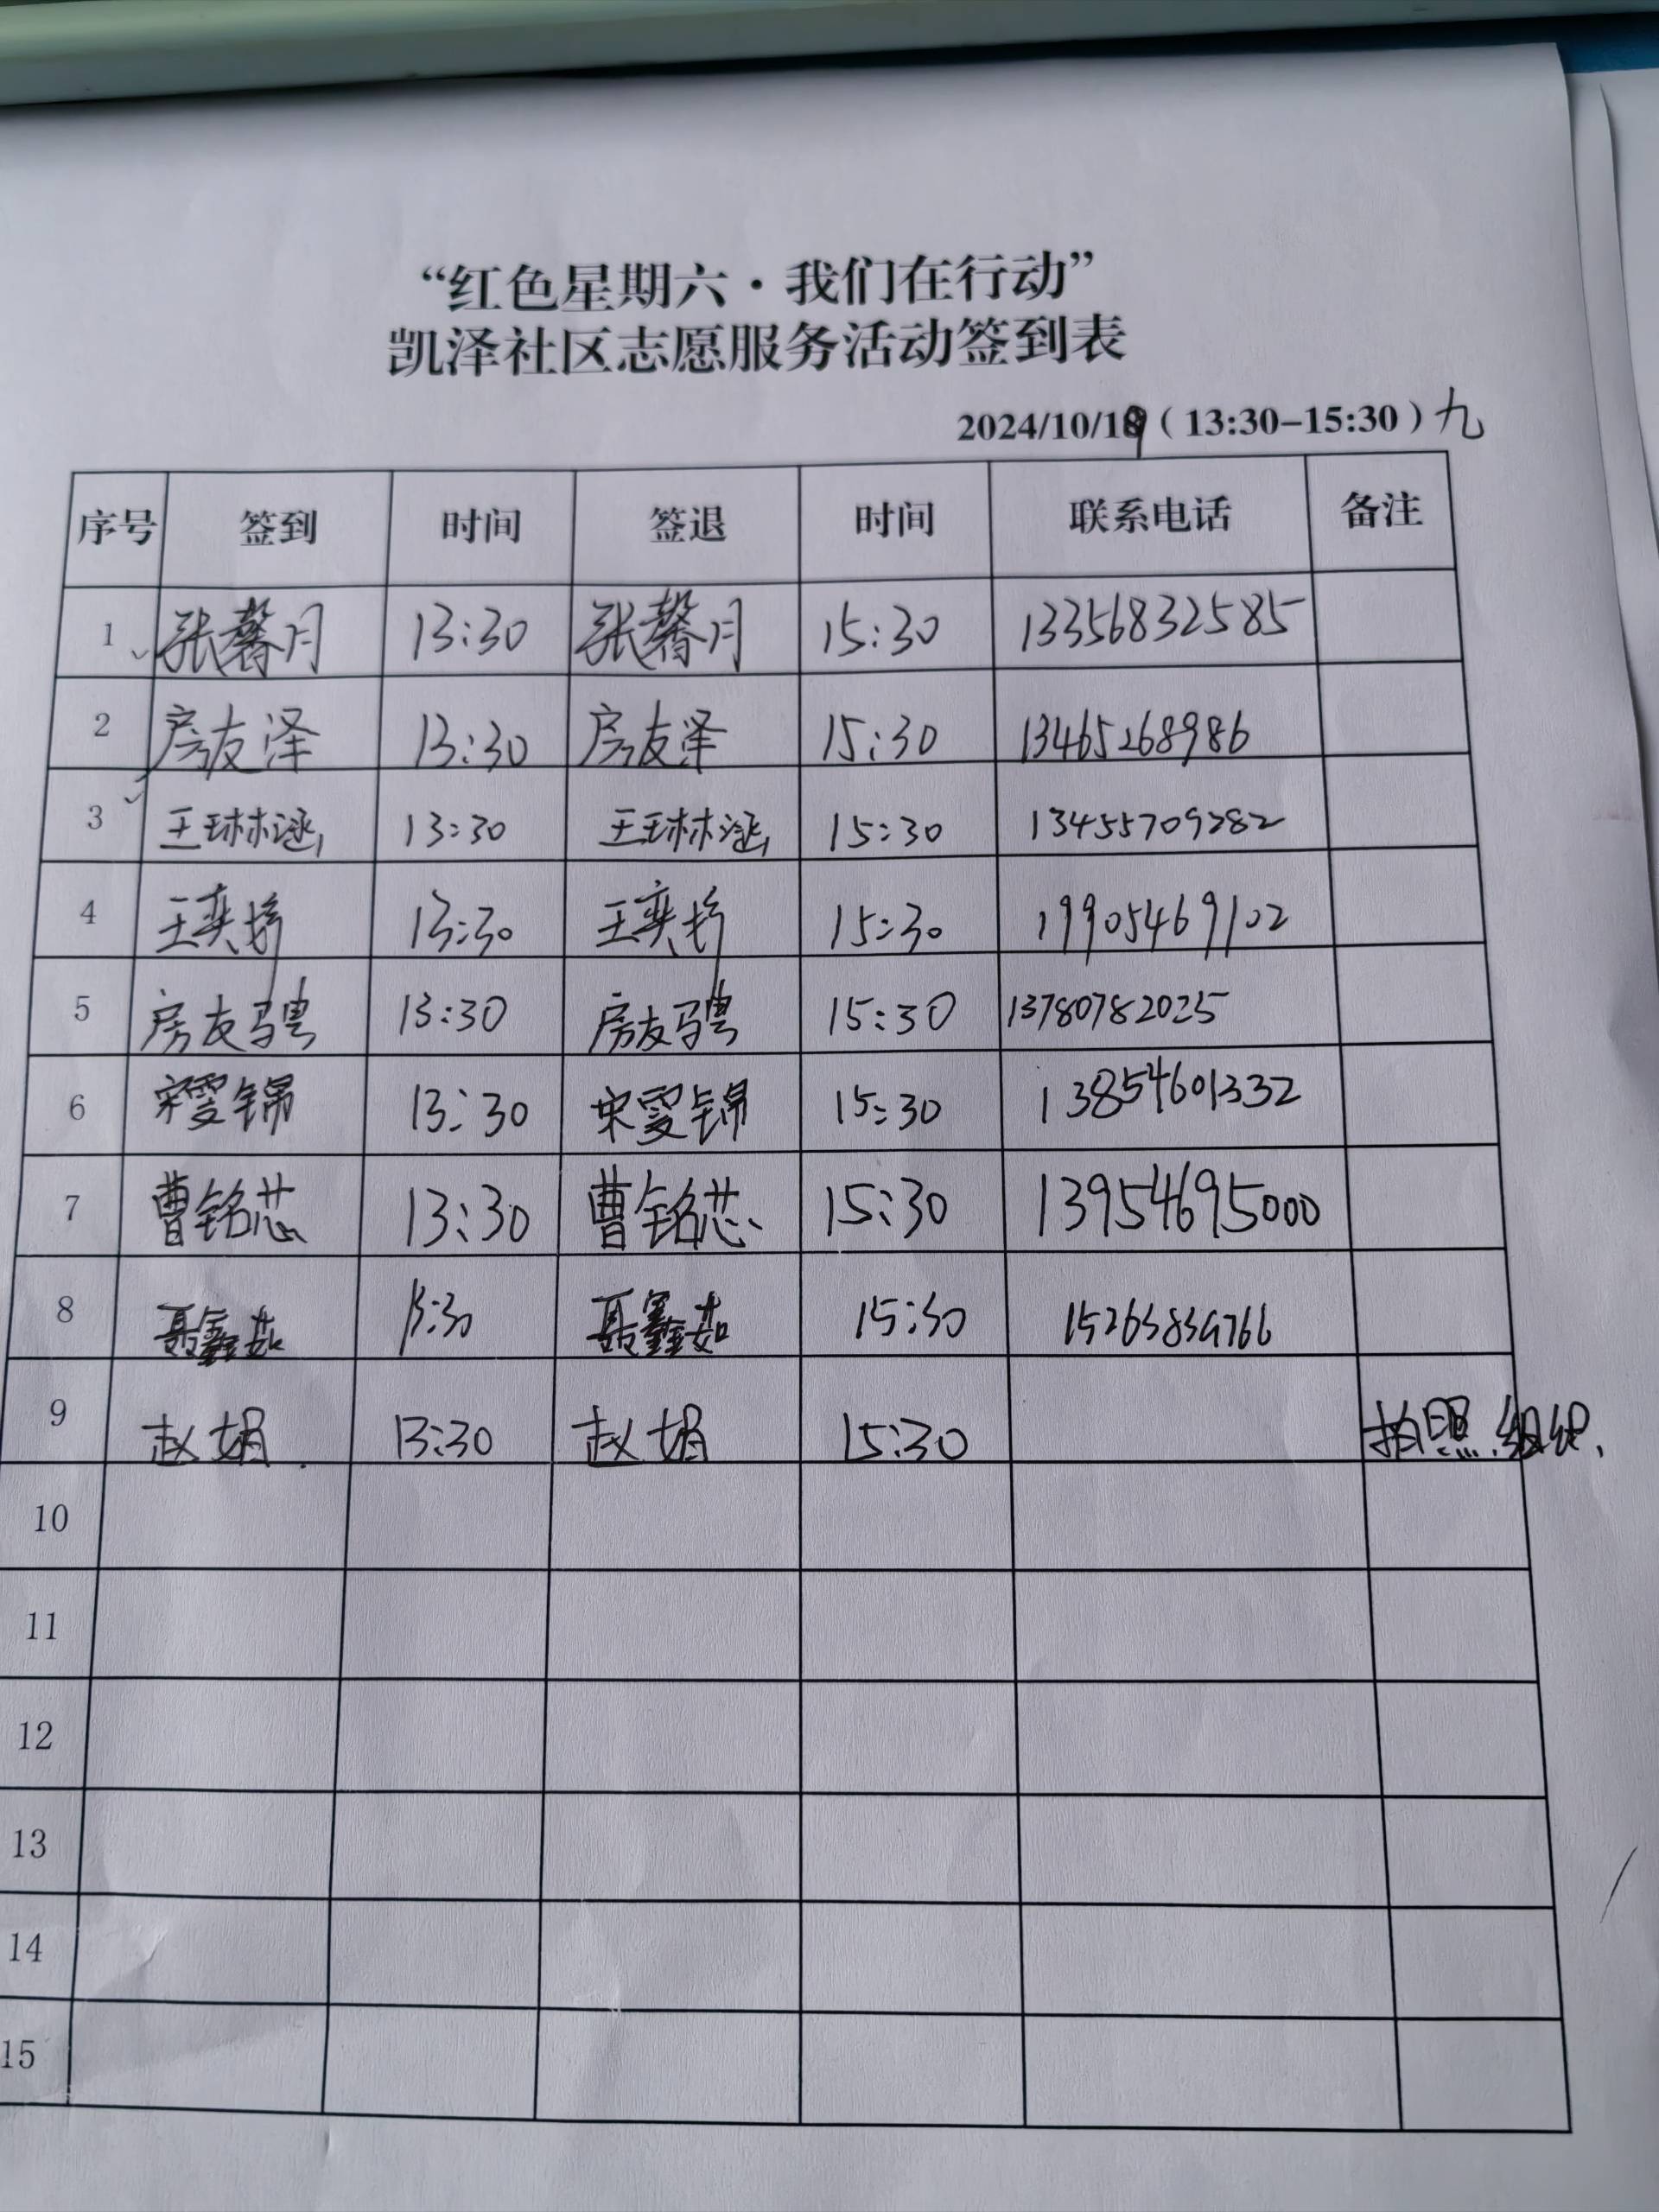 “红色星期六·我们在行动”
凯泽社区志愿服务活动签到表
2024/10/19（13:30-15:30）九
序号 签到 时间 签退 时间 联系电话 备注
1 张馨月 13:30 张馨月 15:30 13356832585
2 房友泽 13:30 房友泽 15:30 13465268986
3 王琳涵 13:30 王琳涵 15:30 13455709282
4 王奕 13:30 王奕 15:30 19905469102
5 房友骋 13:30 房友骋 15:30 13780782025
6 宋雯锦 13:30 宋雯锦 15:30 13854601332
7 曹铭芯 13:30 曹铭芯 15:30 13954695000
8 聂鑫茹 13:30 聂鑫茹 15:30
9 赵娟 13:30 赵娟 15:30 拍照.组织.
10
11
12
13
14
15